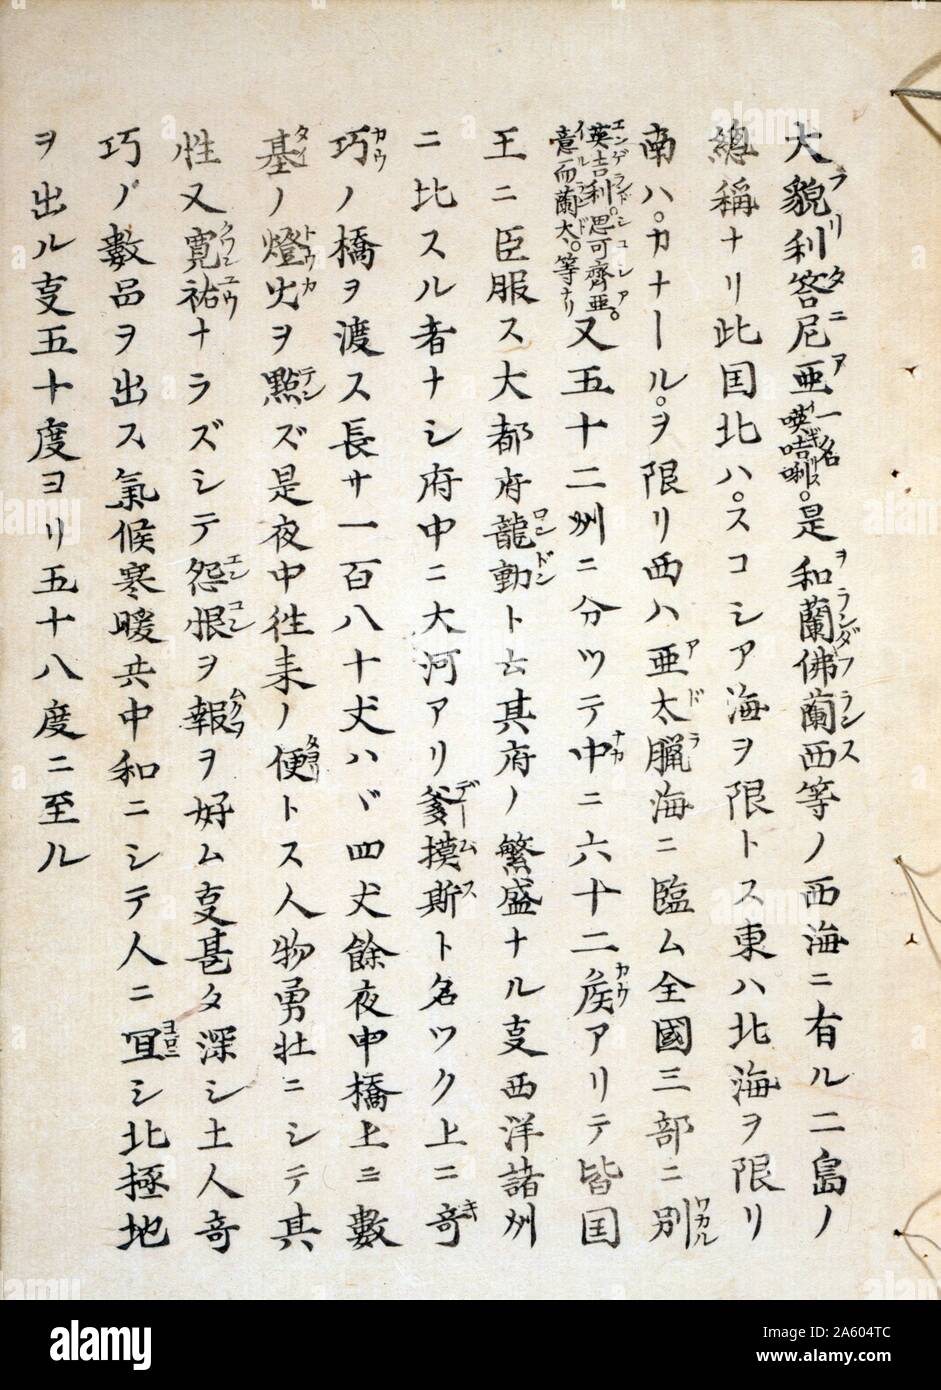 大貌利答尼亜一名𠸄咭唎。是和蘭佛蘭西等ノ西海ニ有ル二島ノ
總稱ナリ此囯北ハ。スコシア海ヲ限トス東ハ北海ヲ限リ
南ハ。カナール。ヲ限リ西ハ亜太臘海ニ臨ム全國三部ニ別
英吉利。思可齊亜。意而蘭太。等ナリ又五十二州ニ分ツテ中ニ六十二侯アリテ皆囯
王ニ臣服ス大都府龍動ト云其府ノ繁盛ナル𠮷西洋諸州
ニ比スル者ナシ府中ニ大河アリ爹摸斯ト名ツク上ニ竒
巧ノ橋ヲ渡ス長サ一百八十丈ハバ四丈餘夜中橋上ニ數
基ノ燈火ヲ點ズ是夜中徃来ノ便トス人物勇壯ニシテ其
性又寛祐ナラズシテ怨恨ヲ報ヲ好ム叓甚タ深シ土人竒
巧ノ數品ヲ出ス氣候寒暖共中和ニシテ人ニ冝シ北極地
ヲ出ル叓五十度ヨリ五十八度ニ至ル
alamy
Image ID: 2A604TC
www.alamy.com